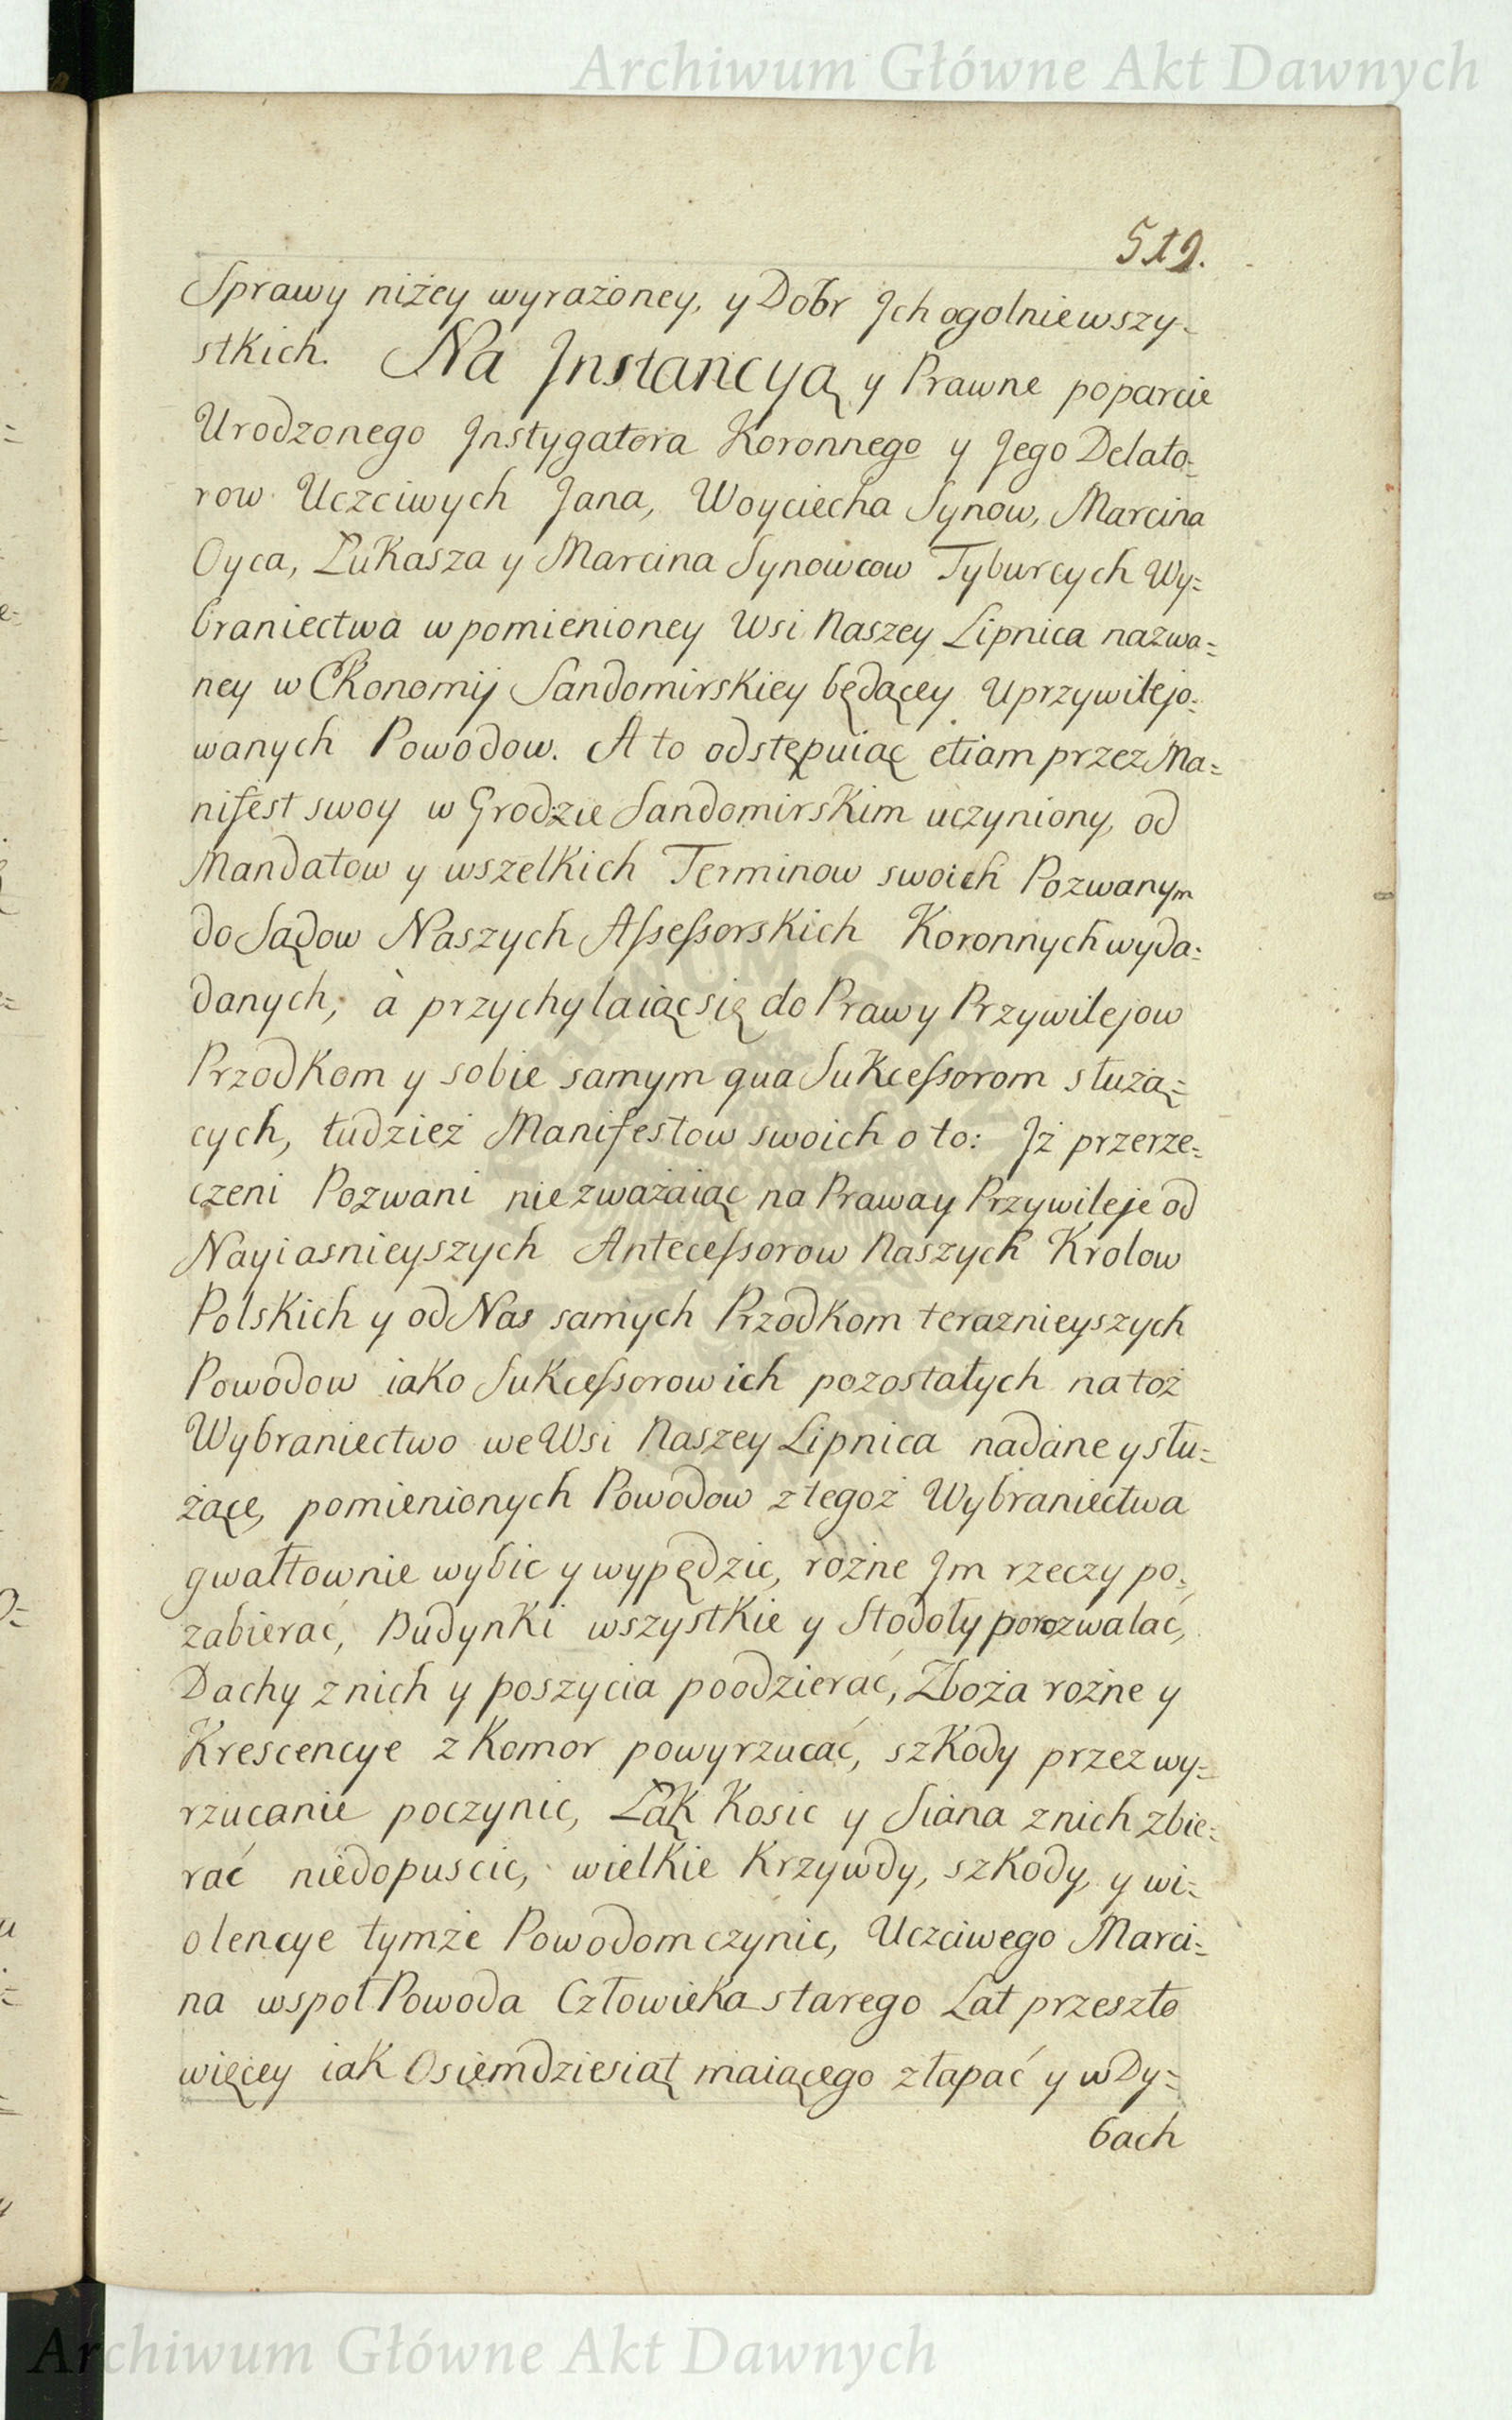 Archiwum Główne Akt Dawnych
519.
Sprawy niżey wyrażoney, y Dobr Jch ogolnie wszy-
stkich. Na Jnstancyą y Prawne poparcie
Urodzonego Jnstygatora Koronnego y Jego Delato-
row Uczciwych Jana, Woyciecha Synow, Marcina
Oyca, Łukasza y Marcina Synowcow Tyburcych Wy-
braniectwa w pomienioney Wsi Naszey Lipnica nazwa-
ney w Ekonomij Sandomirskiey będącey Uprzywilejo-
wanych Powodow. A to odstępuiąc etiam przez Ma-
nifest swoy w Grodzie Sandomirskim uczyniony, od
Mandatow y wszelkich Terminow swoich Pozwanym
do Sądow Naszych Assessorskich Koronnych wyda-
danych, à przychylaiąc się do Praw y Przywilejow
Przodkom y sobie samym qua Sukcessorom służą-
cych, tudzież Manifestow swoich o to: Jż przerze-
czeni Pozwani nie zważaiąc na Prawa y Przywileje od
Nayiasnieyszych Antecessorow Naszych Krolow
Polskich y od Nas samych Przodkom teraznieyszych
Powodow iako Sukcessorow ich pozostałych na toż
Wybraniectwo we Wsi Naszey Lipnica nadane y słu-
żące, pomienionych Powodow z tegoż Wybraniectwa
gwałtownie wybic y wypędzic, rożne Jm rzeczy po-
zabierać, Budynki wszystkie y Stodoły porozwalać,
Dachy z nich y poszycia poodzierać, Zboża rożne y
Krescencye z Komor powyrzucać, szkody przez wy-
rzucanie poczynic, Łąk Kosic y Siana z nich zbie-
rać niedopuscic, wielkie Krzywdy, szkody, y wi-
olencye tymże Powodom czynic, Uczciwego Marci-
na wspoł Powoda Człowieka starego Lat przeszło
więcey iak Osiemdziesiąt maiącego złapać y w Dy-
bach
Archiwum Główne Akt Dawnych